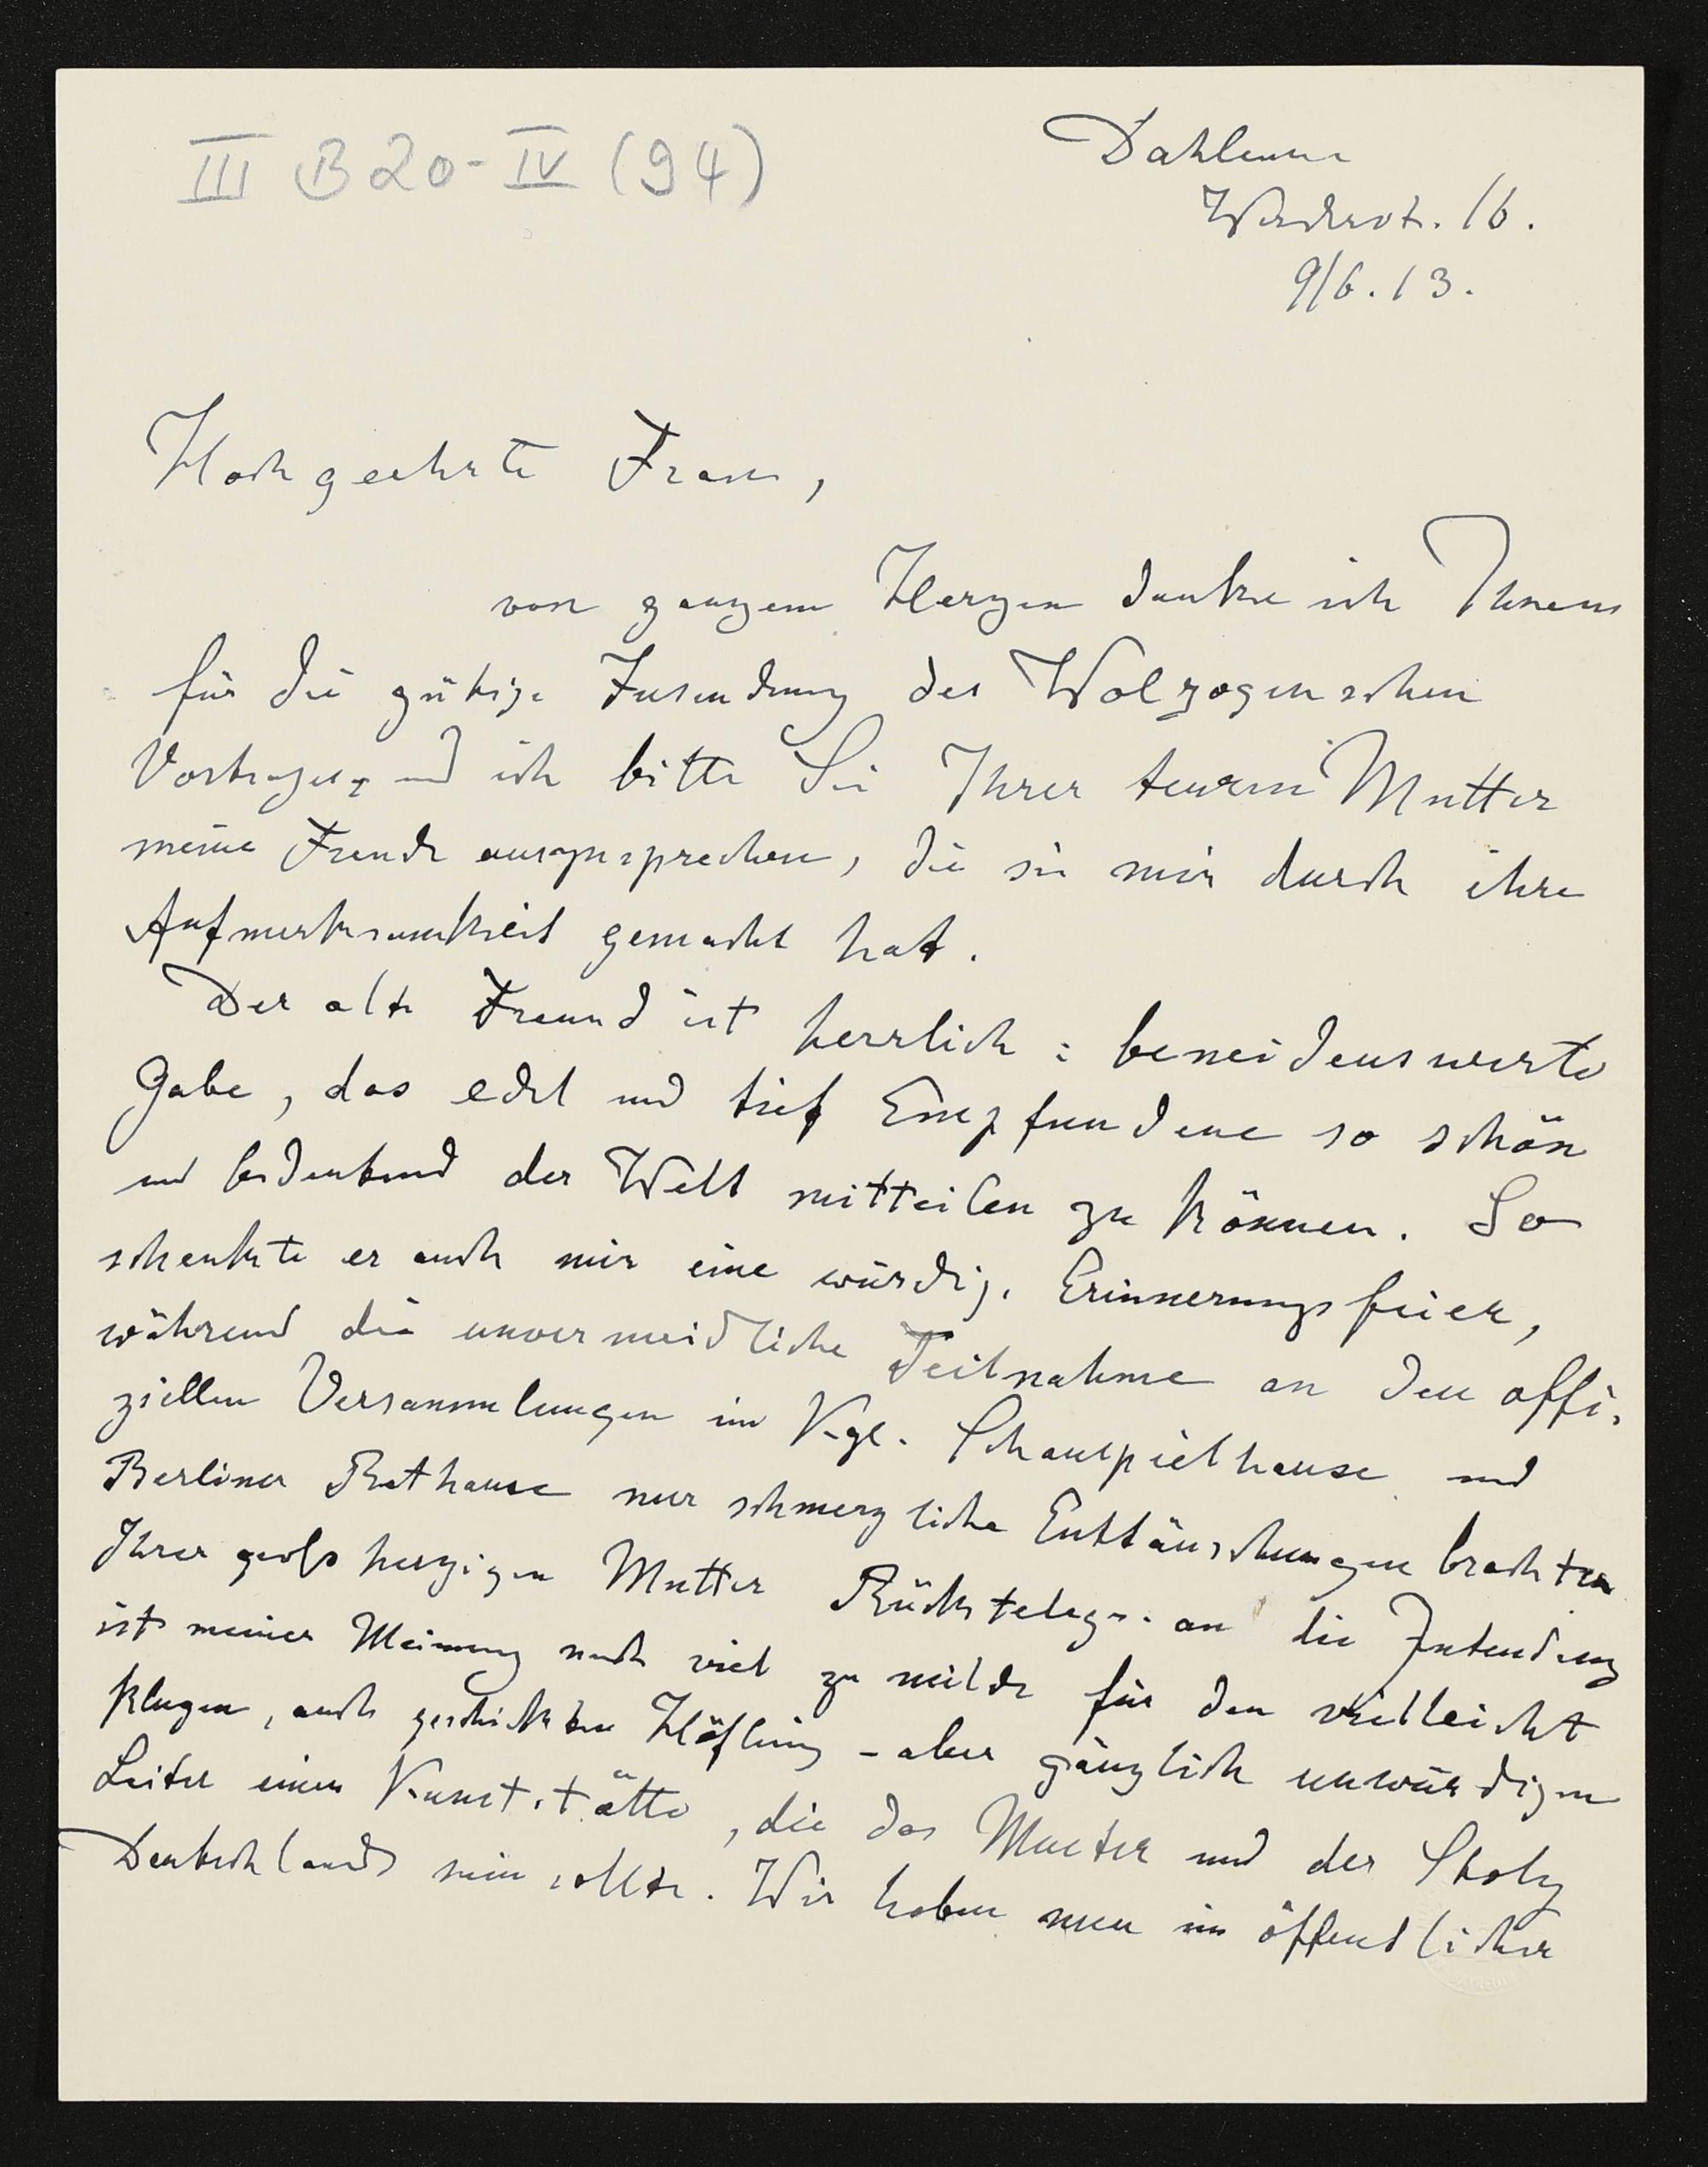 III B 20-IV (94)
Dahlem
Werderstr. 16.
9/6.13.
Hochgeehrte Frau,
von ganzem Herzen danke ich Ihnen
für die gütige Zusendung des Wolzogenschen
Vortrages, und ich bitte Sie Ihrer teuren Mutter
meine Freude auszusprechen, die sie mir durch ihre
Aufmerksamkeit gemacht hat.
Der alte Freund ist herrlich: beneidenswerte
Gabe, das edel und tief Empfundene so schön
und bedeutend der Welt mitteilen zu können. So
schenkte er auch mir eine würdige Erinnerungsfeier,
während die unvermeidliche Teilnahme an den offi-
ziellen Versammlungen im Kgl. Schauspielhause und
Berliner Rathause nur schmerzliche Enttäuschungen brachten
Ihrer großherzigen Mutter Rücktelegr. an die Intendanz
ist meiner Meinung nach viel zu milde für den vielleicht
klugen, auch geschickten Höfling - aber gänzlich unwürdigen
Leiter einer Kunststätte, die das Muster und der Stolz
Deutschlands sein sollte. Wir haben nun im öffentlicher